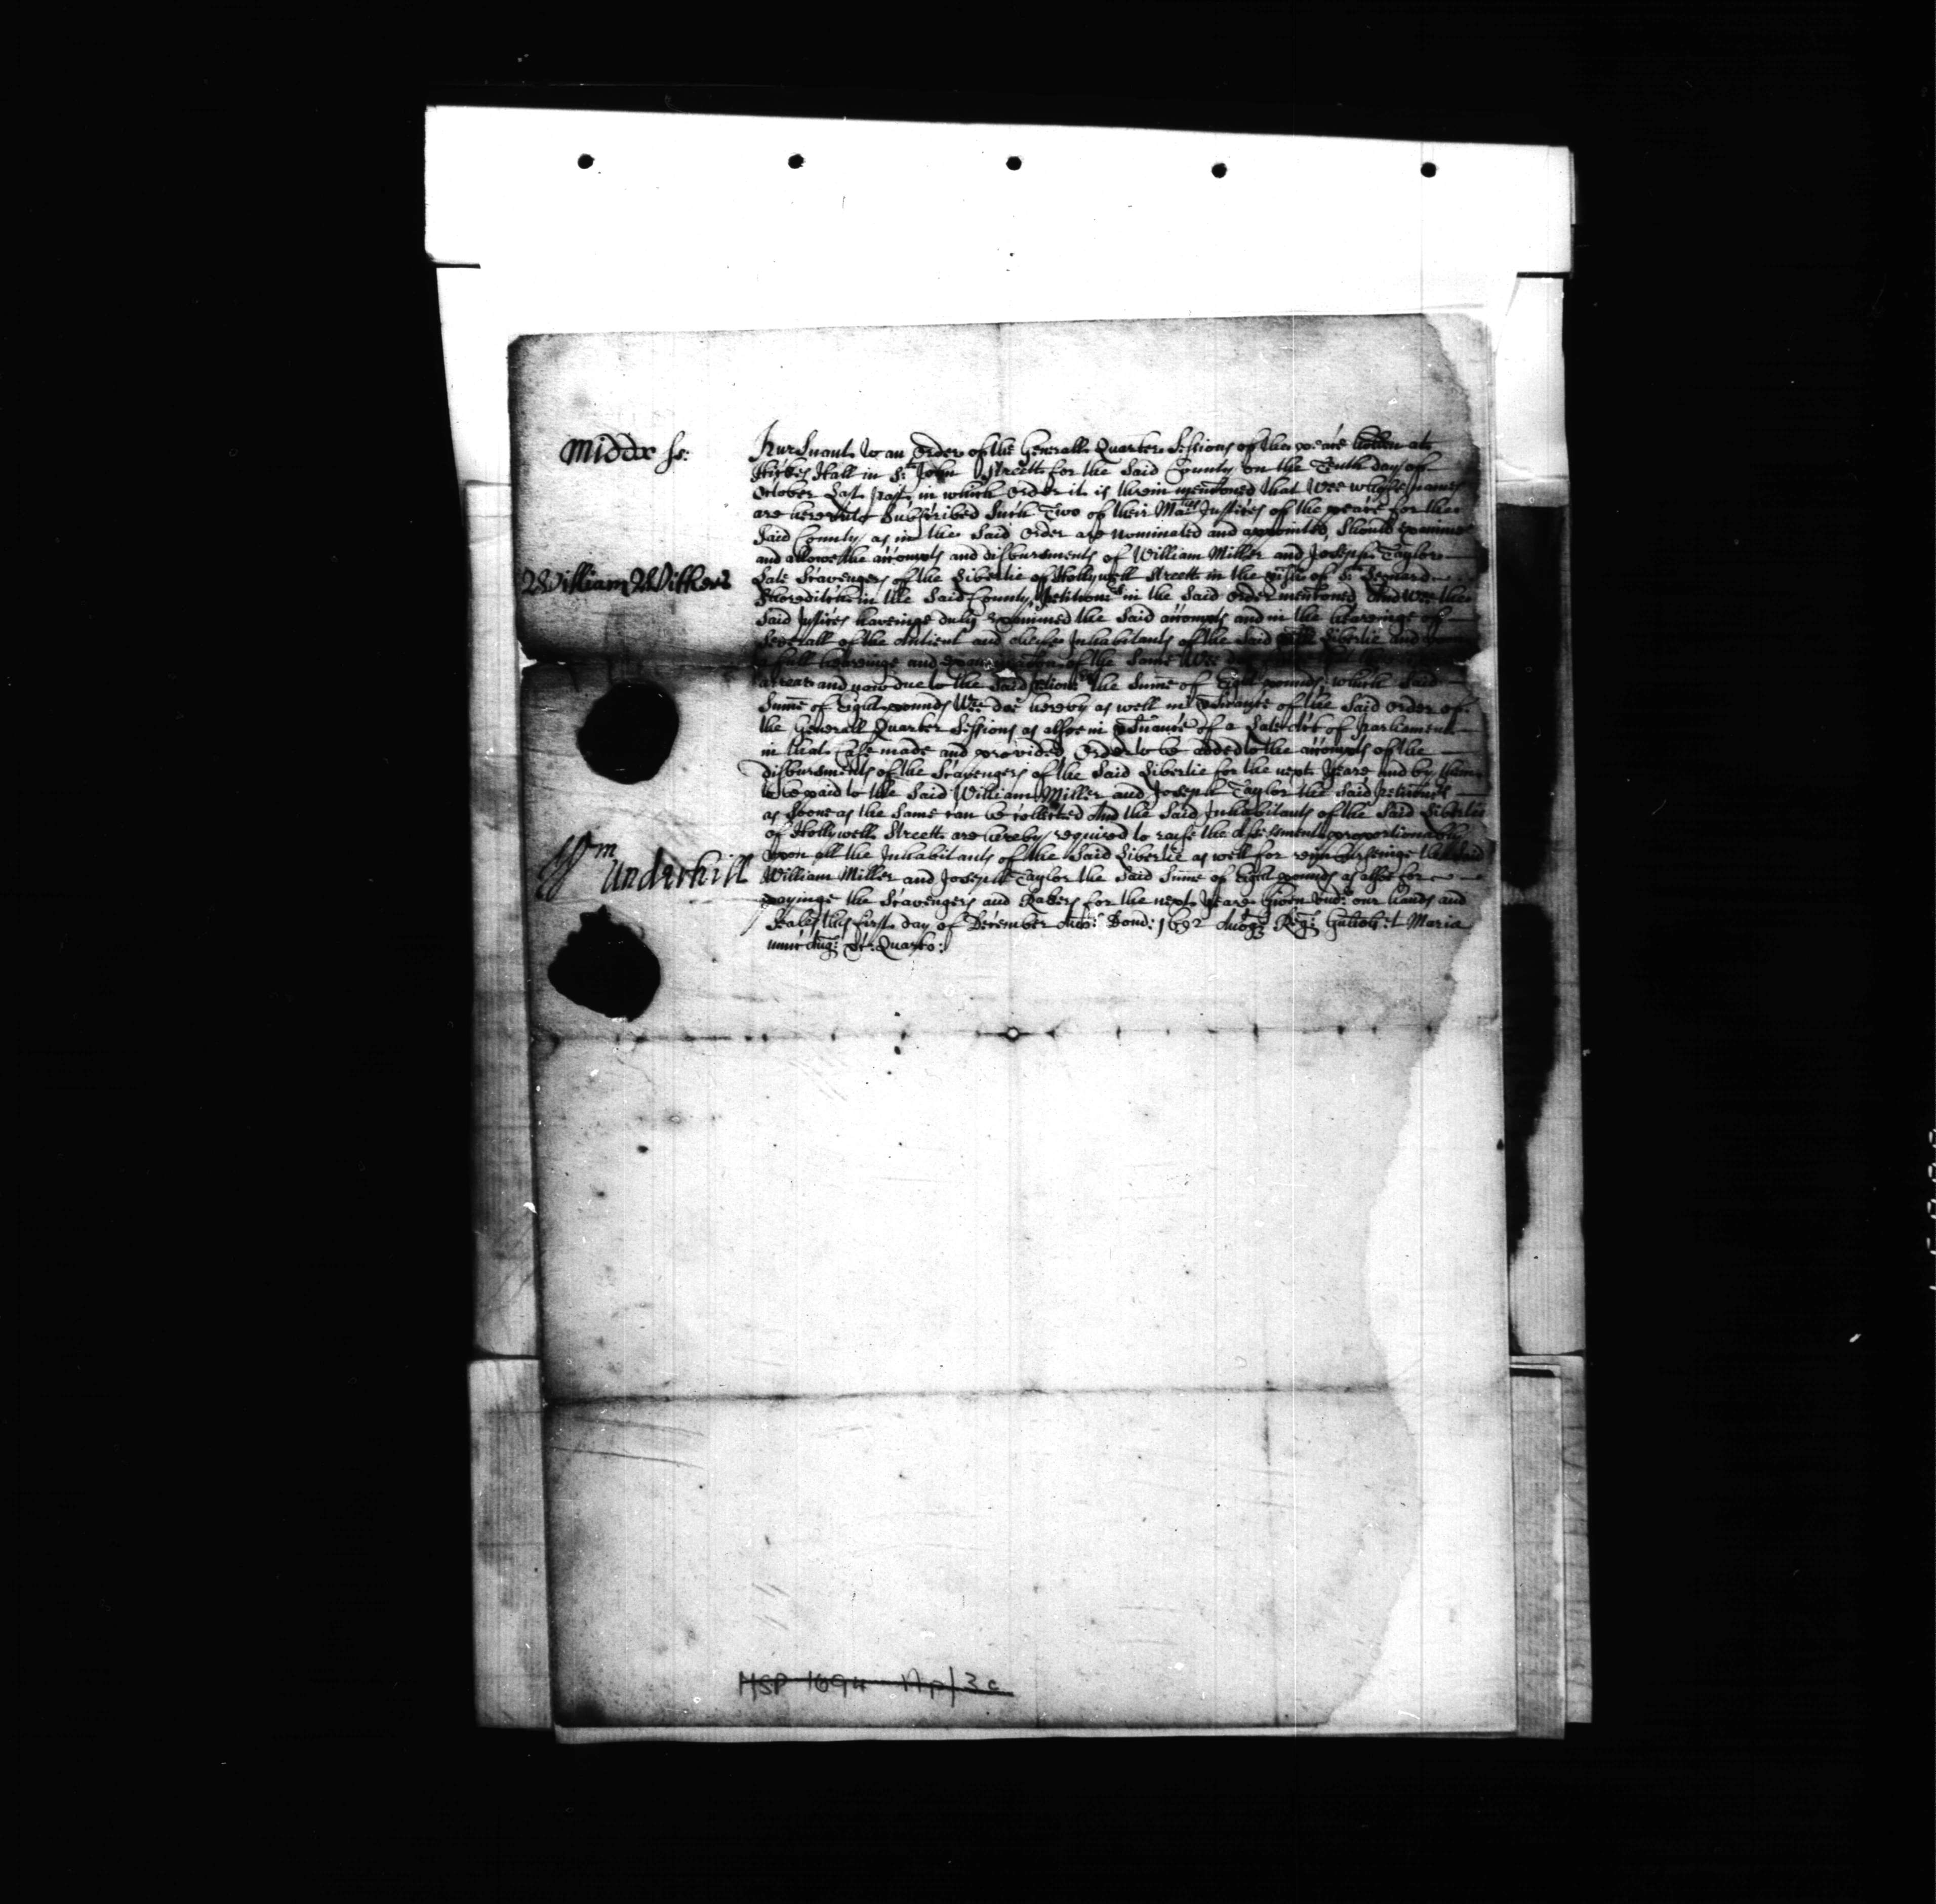 Middx ss:
Pursuant to an Order of the Generall Quarter Sessions of the peace holden att
Hickes Hall in St. John Streett for the said County on the Tenth day of
October last past in which order it is therein mentioned that wee whose names
are hereunto Subscribed Such Two of their Maties Justices of the peace for the
Said County as in the Said Order are nominated and appointed, should examine
and allowe the accompts and disbursments of William Miller and Joseph Taylor
William Withers
Late Scavengers of the Libertie of Hollywell Streett in the of St. Leonard
Shoreditch in the Said County, in the Said Order mentioned And wee the
Said Justices haveinge duly Examined the Said accompts and in the heareinge of
Severall of the Antient and Inhabitants of the Said Libertie and
full heareinge and examination of the Same Wee
arreare and now due to the Said the Sume of Eight pounds which Said
Sume of Eight pounds Wee doe hereby as well in of the Said Order of
the Generall Quarter Sessions as alsoe in of a Late Act of Parliament
in that Case made and provided, Order to be added to the accompts of the
disbursments of the Scavengers of the Said Libertie for the next Yeare and by them
to be paid to the Said William Miller and Joseph Taylor the Said
as Soone as the Same can be collected And the Said Inhabitants of the Said Libertie
of Hollywell Streett are hereby required to raise the Assessment proportionably
Wm Underhill
upon all the Inhabitants of the Said Libertie as well for reimburseinge the Said
William Miller and Joseph Taylor the Said Sume of Eight pounds as alsoe for
payinge the Scavengers and Rakers for the next Yeare Given under our hands and
Seales this first day of December Dom: 1692 Maria
nunc Quarto:
HSP 1694 Ap/3c